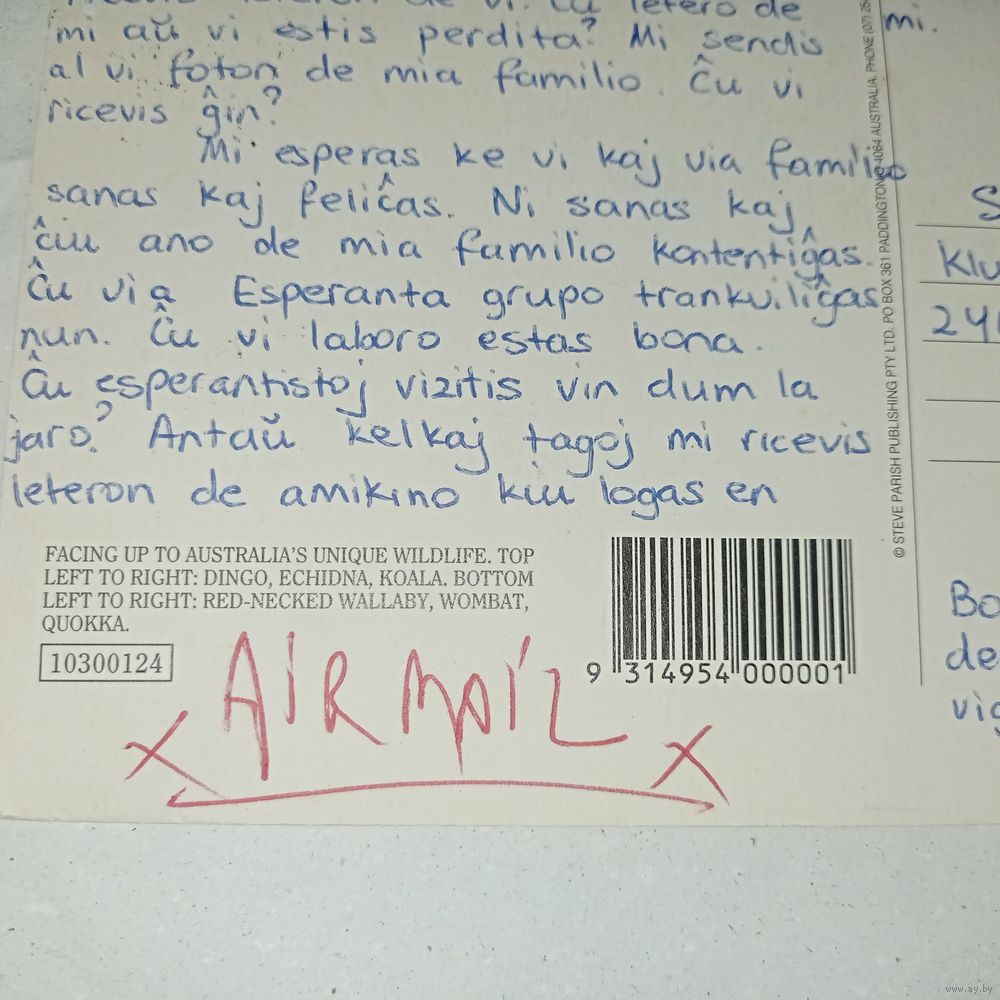 leteron de vi. Ĉu letero de
mi aŭ vi estis perdita? Mi sendis
al vi foton de mia familio. Ĉu vi
ricevis ĝin?
Mi esperas ke vi kaj via familio
sanas kaj feliĉas. Ni sanas kaj
ĉiu ano de mia familio kontentiĝas.
Ĉu via Esperanta grupo trankviliĝas
nun. Ĉu vi laboro estas bona.
Ĉu esperantistoj vizitis vin dum la
jaro? Antaŭ kelkaj tagoj mi ricevis
leteron de amikino kiu logas en
FACING UP TO AUSTRALIA'S UNIQUE WILDLIFE. TOP
LEFT TO RIGHT: DINGO, ECHIDNA, KOALA. BOTTOM
LEFT TO RIGHT: RED-NECKED WALLABY, WOMBAT,
QUOKKA.
10300124
9 314954 000001
AIR MAIL
© STEVE PARISH PUBLISHING PTY LTD. PO BOX 361 PADDINGTON 4064 AUSTRALIA. PHONE (07)
mi.
S
Klu
Bo
de
vig
www.ay.by